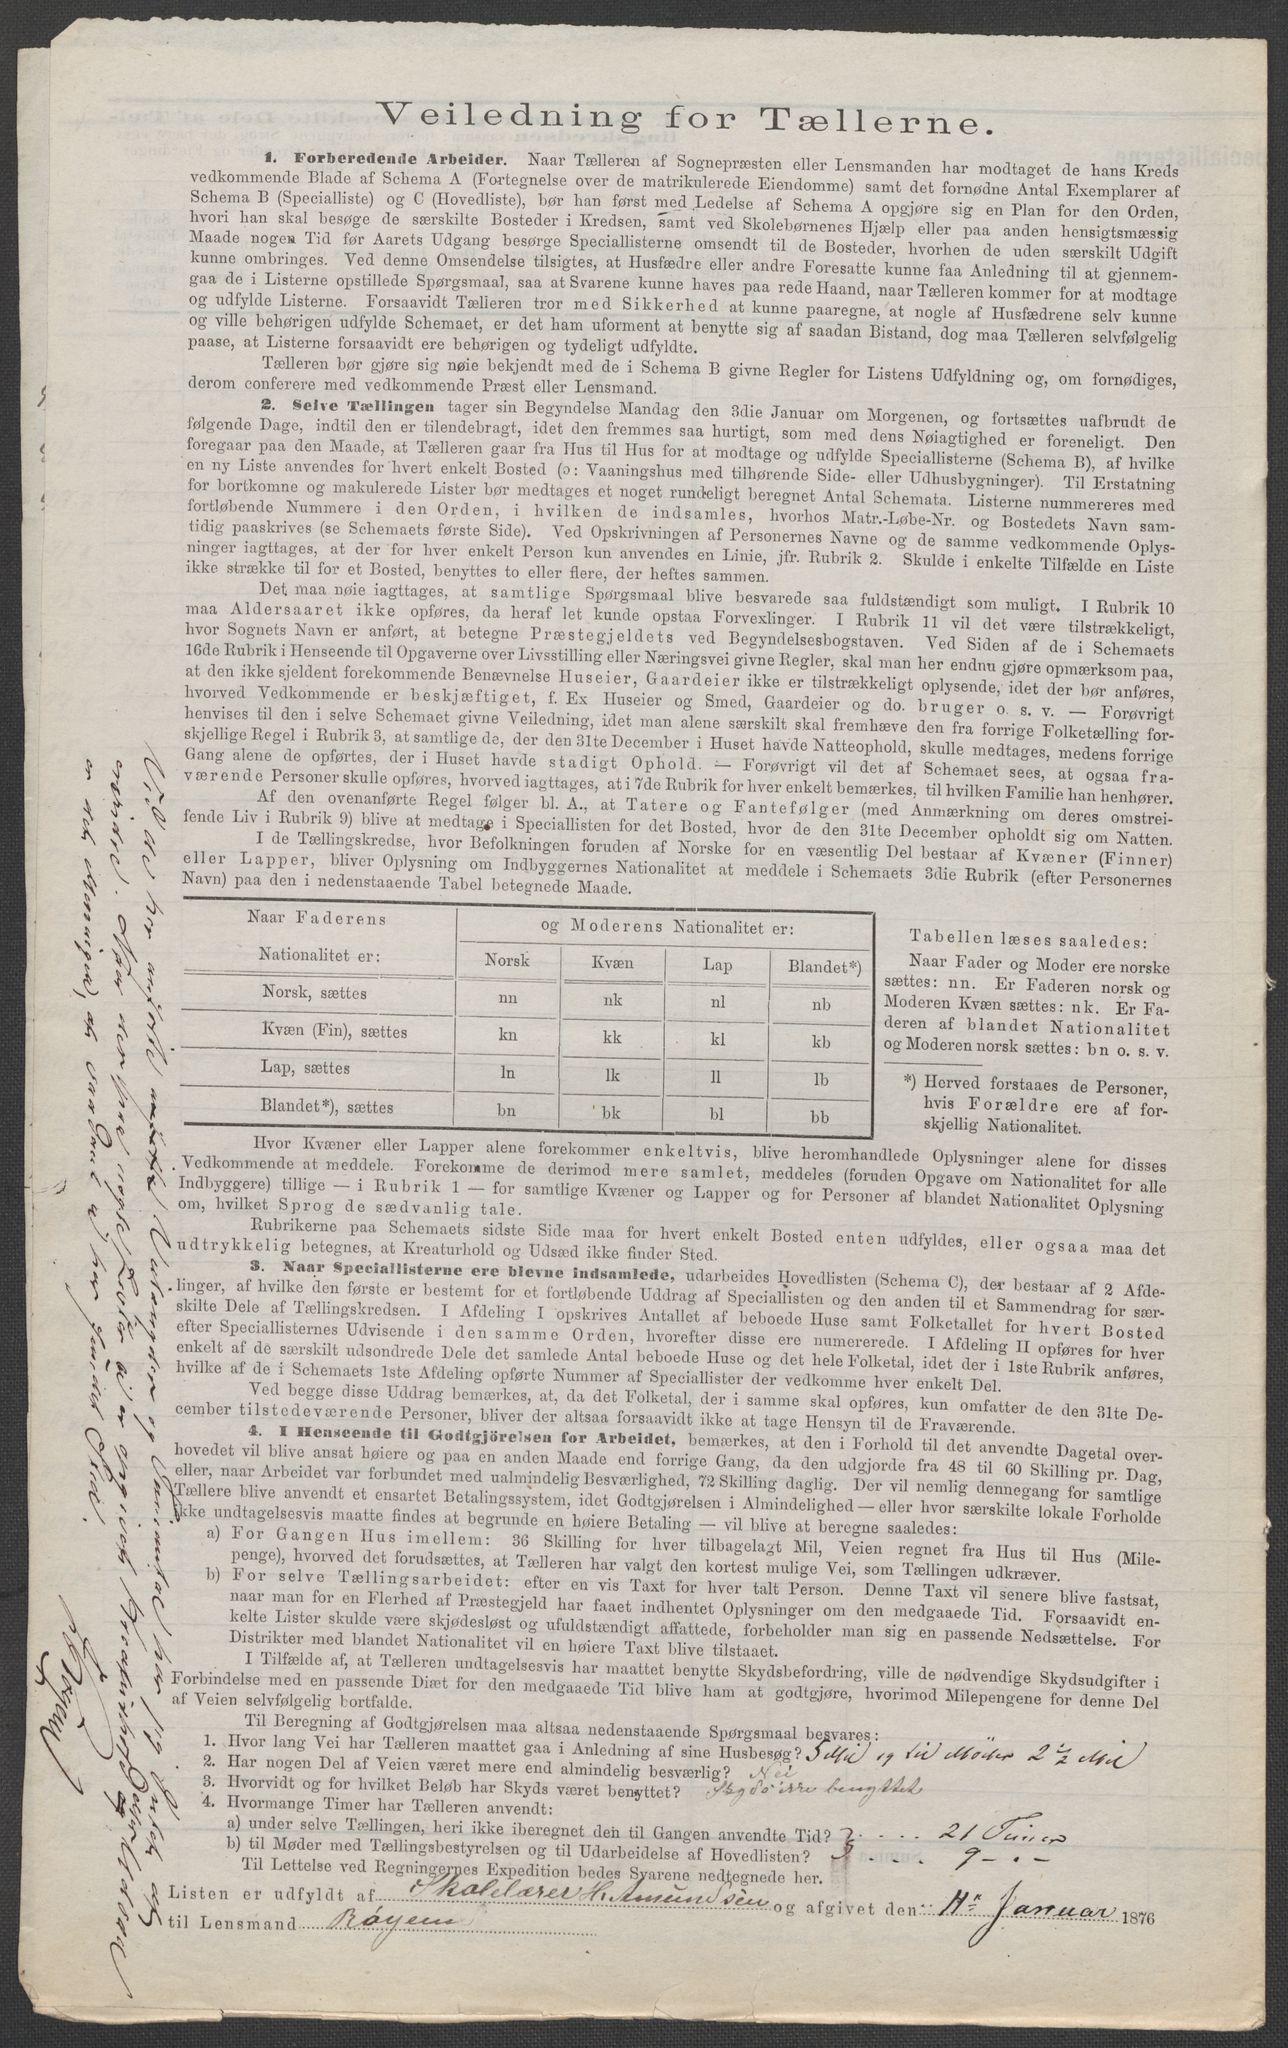 Veiledning for Tællerne.
1. Forberedende Arbeider. Naar Tælleren af Sognepræsten eller Lensmanden har modtaget de hans Kreds
vedkommende Blade af Schema A (Fortegnelse over de matrikulerede Eiendomme) samt det fornødne Antal Exemplarer af
Schema B (Specialliste) og C (Hovedliste), bør han først med Ledelse af Schema A opgjøre sig en Plan for den Orden,
hvori han skal besøge de særskilte Bosteder i Kredsen, samt ved Skolebørnenes Hjælp eller paa anden hensigtsmæssig
Maade nogen Tid før Aarets Udgang besørge Speciallisterne omsendt til de Bosteder, hvorhen de uden særskilt Udgift
kunne ombringes. Ved denne Omsendelse tilsigtes, at Husfædre eller andre Foresatte kunne faa Anledning til at gjennem-
gaa de i Listerne opstillede Spørgsmaal, saa at Svarene kunne haves paa rede Haand, naar Tælleren kommer for at modtage
og udfylde Listerne. Forsaavidt Tælleren tror med Sikkerhed at kunne paaregne, at nogle af Husfædrene selv kunne
og ville behørigen udfylde Schemaet, er det ham uforment at benytte sig af saadan Bistand, dog maa Tælleren selvfølgelig
paase, at Listerne forsaavidt ere behørigen og tydeligt udfyldte.
Tælleren bør gjøre sig nøie bekjendt med de i Schema B givne Regler for Listens Udfyldning og, om fornødiges,
derom conferere med vedkommende Præst eller Lensmand.
2. Selve Tællingen tager sin Begyndelse Mandag den 3die Januar om Morgenen, og fortsættes uafbrudt de
følgende Dage, indtil den er tilendebragt, idet den fremmes saa hurtigt, som med dens Nøiagtighed er foreneligt. Den
foregaar paa den Maade, at Tælleren gaar fra Hus til Hus for at modtage og udfylde Speciallisterne (Schema B), af hvilke
en ny Liste anvendes for hvert enkelt Bosted (ɔ: Vaaningshus med tilhørende Side- eller Udhusbygninger). Til Erstatning
for bortkomne og makulerede Lister bør medtages et noget rundeligt beregnet Antal Schemata. Listerne nummereres med
fortløbende Nummere i den Orden, i hvilken de indsamles, hvorhos Matr.-Løbe-Nr. og Bostedets Navn sam-
tidig paaskrives (se Schemaets første Side). Ved Opskrivningen af Personernes Navne og de samme vedkommende Oplys-
ninger iagttages, at der for hver enkelt Person kun anvendes en Linie, jfr. Rubrik 2. Skulde i enkelte Tilfælde en Liste
ikke strække til for et Bosted, benyttes to eller flere, der heftes sammen.
Det maa nøie iagttages, at samtlige Spørgsmaal blive besvarede saa fuldstændigt som muligt. I Rubrik 10
maa Aldersaaret ikke opføres, da heraf let kunde opstaa Forvexlinger. I Rubrik 11 vil det være tilstrækkeligt,
hvor Sognets Navn er anført, at betegne Præstegjeldets ved Begyndelsesbogstaven. Ved Siden af de i Schemaets
16de Rubrik i Henseende til Opgaverne over Livsstilling eller Næringsvei givne Regler, skal man her endnu gjøre opmærksom paa,
at den ikke sjeldent forekommende Benævnelse Huseier, Gaardeier ikke er tilstrækkeligt oplysende, idet der bør anføres,
hvorved Vedkommende er beskjæftiget, f. Ex Huseier og Smed, Gaardeier og do. bruger o. s. v. — Forøvrigt
henvises til den i selve Schemaet givne Veiledning, idet man alene særskilt skal fremhæve den fra forrige Folketælling for-
skjellige Regel i Rubrik 3, at samtlige de, der den 31te December i Huset havde Natteophold, skulle medtages, medens forrige
Gang alene de opførtes, der i Huset havde stadigt Ophold. — Forøvrigt vil det af Schemaet sees, at ogsaa fra-
værende Personer skulle opføres, hvorved iagttages, at i 7de Rubrik for hver enkelt bemærkes, til hvilken Familie han henhører.
Af den ovenanførte Regel følger bl. A., at Tatere og Fantefølger (med Anmærkning om deres omstrei-
fende Liv i Rubrik 9) blive at medtage i Speciallisten for det Bosted, hvor de den 31te December opholdt sig om Natten.
I de Tællingskredse, hvor Befolkningen foruden af Norske for en væsentlig Del bestaar af Kvæner (Finner)
eller Lapper, bliver Oplysning om Indbyggernes Nationalitet at meddele i Schemaets 3die Rubrik (efter Personernes
Navn) paa den i nedenstaaende Tabel betegnede Maade.
Naar Faderens Nationalitet er: og Moderens Nationalitet er:
Norsk Kvæn Lap Blandet*)
Norsk, sættes nn nk nl nb
Kvæn (Fin), sættes kn kk kl kb
Lap, sættes ln lk ll lb
Blandet*), sættes bn bk bl bb
Tabellen læses saaledes:
Naar Fader og Moder ere norske
sættes: nn. Er Faderen norsk og
Moderen Kvæn sættes: nk. Er Fa-
deren af blandet Nationalitet
og Moderen norsk sættes: bn o. s. v.
*) Herved forstaaes de Personer,
hvis Forældre ere af for-
skjellig Nationalitet.
Hvor Kvæner eller Lapper alene forekommer enkeltvis, blive heromhandlede Oplysninger alene for disses
Vedkommende at meddele. Forekomme de derimod mere samlet, meddeles (foruden Opgave om Nationalitet for alle
Indbyggere) tillige — i Rubrik 1 — for samtlige Kvæner og Lapper og for Personer af blandet Nationalitet Oplysning
om, hvilket Sprog de sædvanlig tale.
Rubrikerne paa Schemaets sidste Side maa for hvert enkelt Bosted enten udfyldes, eller ogsaa maa det
udtrykkelig betegnes, at Kreaturhold og Udsæd ikke finder Sted.
3. Naar Speciallisterne ere blevne indsamlede, udarbeides Hovedlisten (Schema C), der bestaar af 2 Afde-
linger, af hvilke den første er bestemt for et fortløbende Uddrag af Speciallisten og den anden til et Sammendrag for sær-
skilte Dele af Tællingskredsen. I Afdeling I opskrives Antallet af beboede Huse samt Folketallet for hvert Bosted
efter Speciallisternes Udvisende i den samme Orden, hvorefter disse ere numererede. I Afdeling II opføres for hver
enkelt af de særskilt udsondrede Dele det samlede Antal beboede Huse og det hele Folketal, idet der i 1ste Rubrik anføres,
hvilke af de i Schemaets 1ste Afdeling opførte Nummer af Speciallister der vedkomme hver enkelt Del.
Ved begge disse Uddrag bemærkes, at, da det Folketal, der i samme skal opføres, kun omfatter de den 31te De-
cember tilstedeværende Personer, bliver der altsaa forsaavidt ikke at tage Hensyn til de Fraværende.
4. I Henseende til Godtgjörelsen for Arbeidet, bemærkes, at den i Forhold til det anvendte Dagetal over-
hovedet vil blive ansat høiere og paa en anden Maade end forrige Gang, da den udgjorde fra 48 til 60 Skilling pr. Dag,
eller, naar Arbeidet var forbundet med ualmindelig Besværlighed, 72 Skilling daglig. Der vil nemlig dennegang for samtlige
Tællere blive anvendt et ensartet Betalingssystem, idet Godtgjørelsen i Almindelighed — eller hvor særskilte lokale Forholde
ikke undtagelsesvis maatte findes at begrunde en høiere Betaling — vil blive at beregne saaledes:
a) For Gangen Hus imellem: 36 Skilling for hver tilbagelagt Mil, Veien regnet fra Hus til Hus (Mile-
penge), hvorved det forudsættes, at Tælleren har valgt den kortest mulige Vei, som Tællingen udkræver.
b) For selve Tællingsarbeidet: efter en vis Taxt for hver talt Person. Denne Taxt vil senere blive fastsat,
naar man for en Flerhed af Præstegjeld har faaet indhentet Oplysninger om den medgaaede Tid. Forsaavidt en-
kelte Lister skulde være skjødesløst og ufuldstændigt affattede, forbeholder man sig en passende Nedsættelse. For
Distrikter med blandet Nationalitet vil en høiere Taxt blive tilstaaet.
I Tilfælde af, at Tælleren undtagelsesvis har maattet benytte Skydsbefordring, ville de nødvendige Skydsudgifter i
Forbindelse med en passende Diæt for den medgaaede Tid blive ham at godtgjøre, hvorimod Milepengene for denne Del
af Veien selvfølgelig bortfalde.
Til Beregning af Godtgjørelsen maa altsaa nedenstaaende Spørgsmaal besvares:
1. Hvor lang Vei har Tælleren maattet gaa i Anledning af sine Husbesøg? 5 Mil og til Møder 2 1/2 Mil
2. Har nogen Del af Veien været mere end almindelig besværlig? Nei
3. Hvorvidt og for hvilket Beløb har Skyds været benyttet? Skyds ikke benyttet
4. Hvormange Timer har Tælleren anvendt:
a) under selve Tællingen, heri ikke iberegnet den til Gangen anvendte Tid? 21 Timer
b) til Møder med Tællingsbestyrelsen og til Udarbeidelse af Hovedlisten? 9 — " —
Til Lettelse ved Regningernes Expedition bedes Svarene nedtegnede her.
Listen er udfyldt af Skolelærer H. Amundsen og afgivet den Januar 1876
til Lensmand Røyem